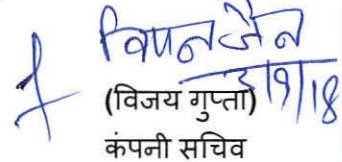 विपन जैन
3/9/18
(विजय गुप्ता)
कंपनी सचिव